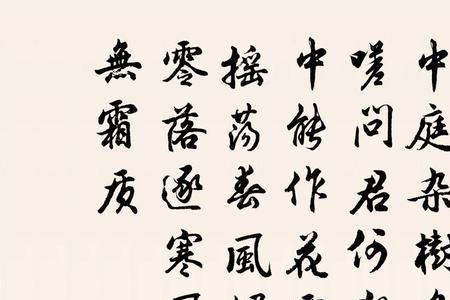 中庭杂樹
嗟问君何
中能作花
摇荡春風
零落逐寒
無霜质